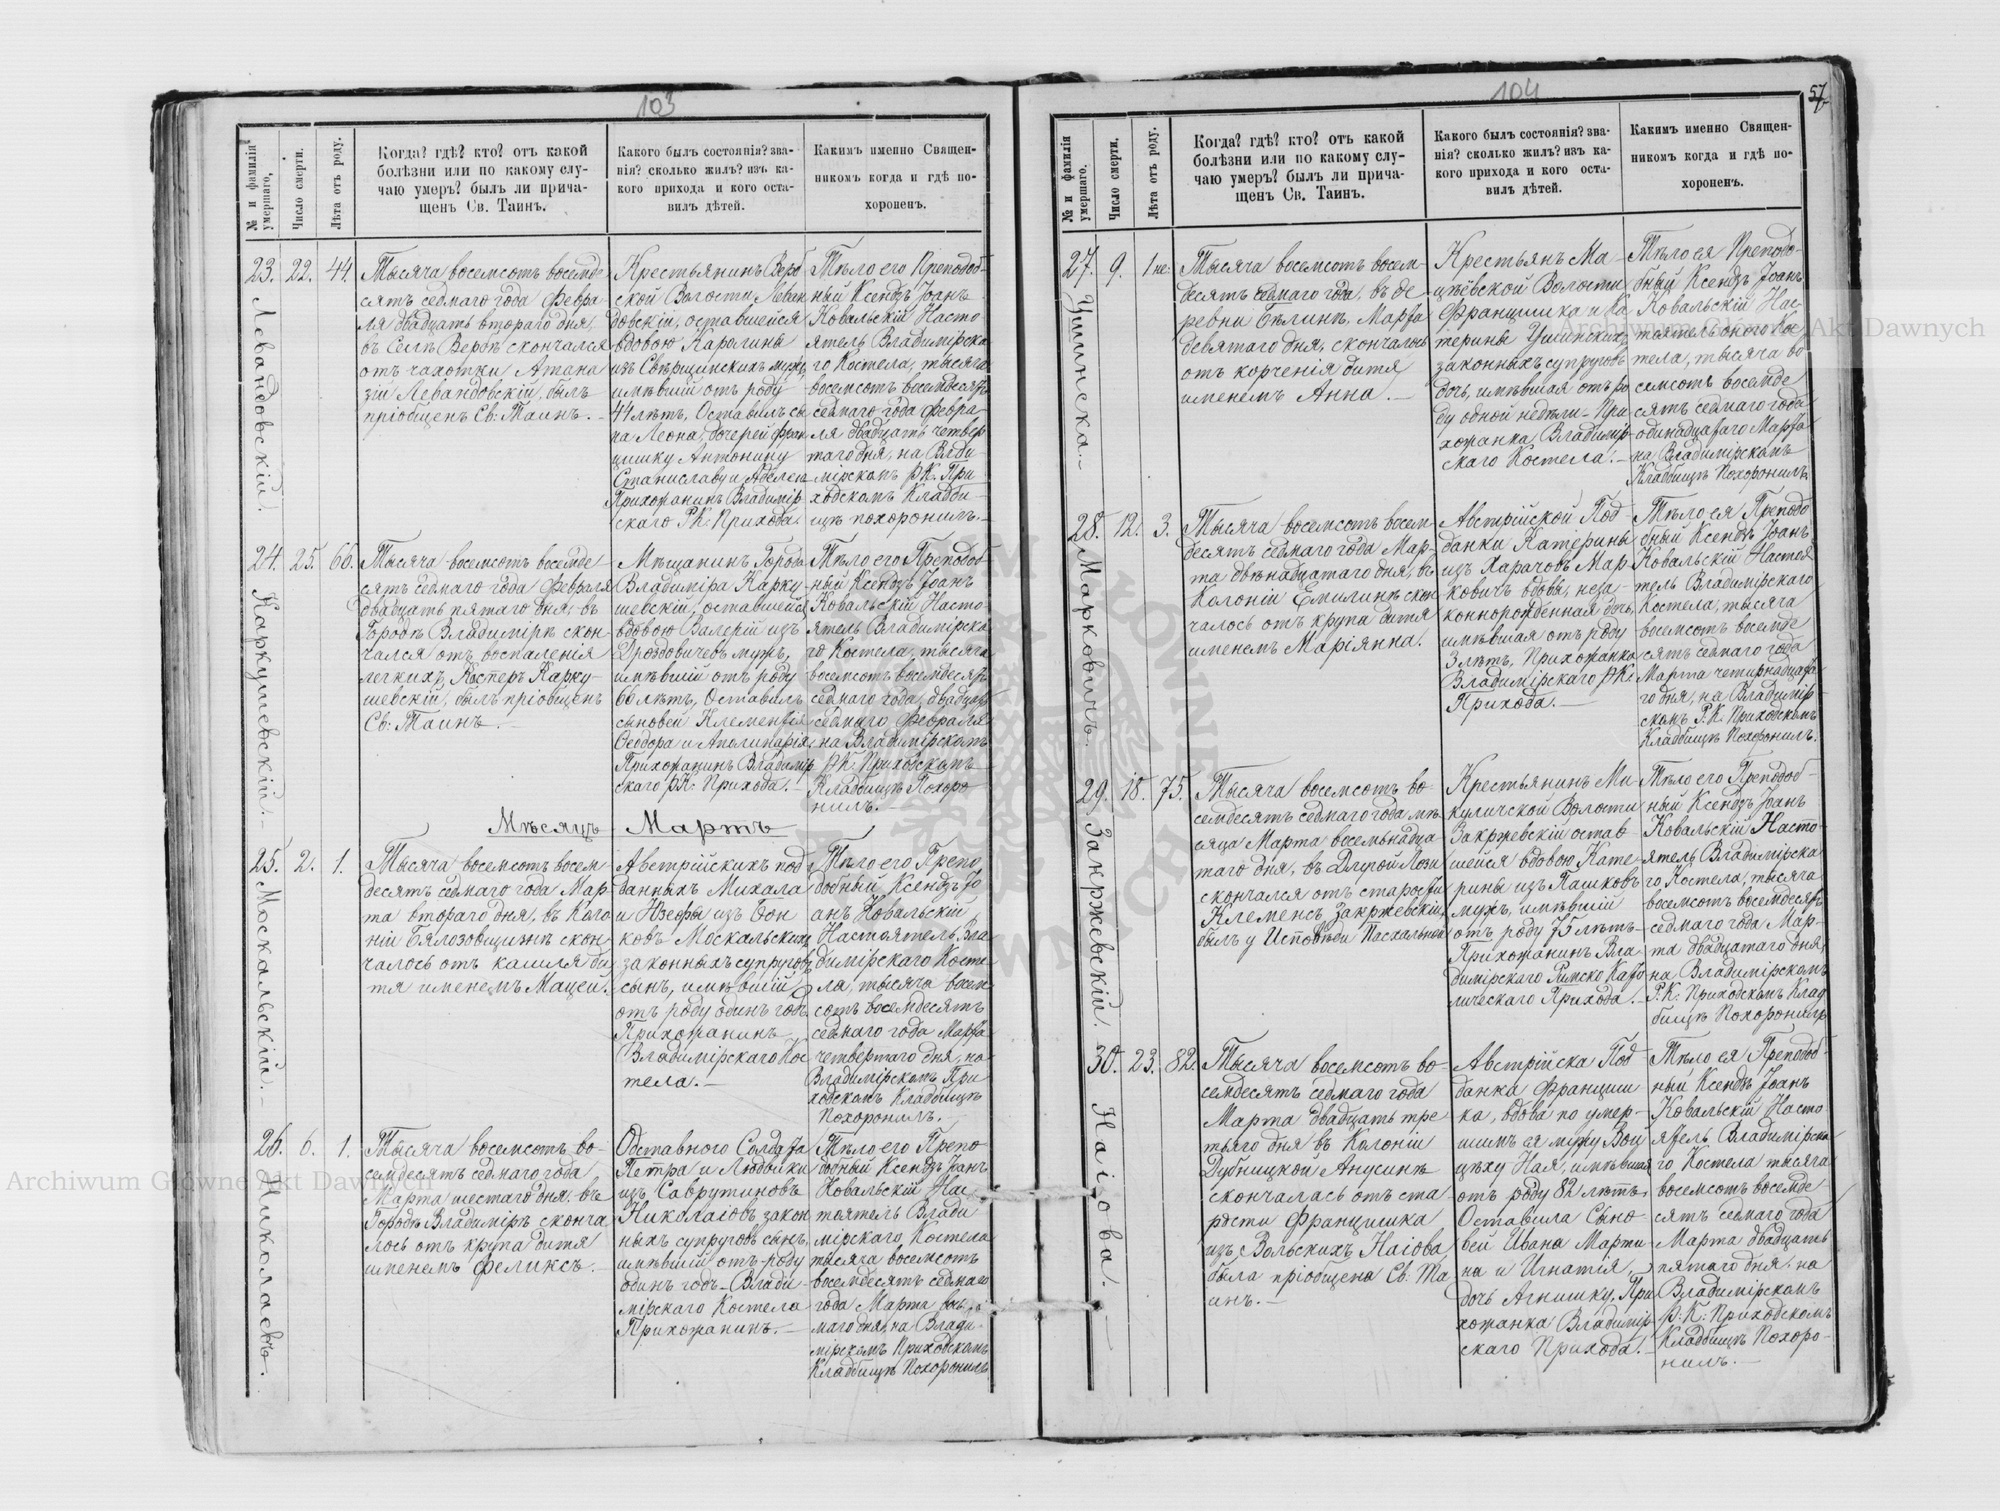 103
№ и фамилія умершаго,
Число смерти.
Лѣта отъ роду.
Когда? гдѣ? кто? отъ какой
болѣзни или по какому слу-
чаю умеръ? былъ ли прича-
щенъ Св. Таинъ.
Какого былъ состоянія? зва-
нія? сколько жилъ? изъ ка-
кого прихода и кого оста-
вилъ дѣтей.
Какимъ именно Священ-
никомъ когда и гдѣ по-
хороненъ.
23. 22. 44.
Левандовскій.
Тысяча восемсотъ восемде
сятъ седмаго года Февра-
ля двадцать втораго дня,
въ Селѣ Вербѣ скончался
отъ чахотки Атана
зій Левандовскій, былъ
пріобщенъ Св: Таинъ. –
Крестьянинъ Верб
ской Волости Леван
довскій, оставшейся
вдовою Каролины
изъ Свѣрщинскихъ мужъ,
имѣвшій отъ роду
44 лѣтъ, Оставилъ сы
на Леона, дочерей Фран
цишку Антонину
Станиславу и Аделен
Прихожанинъ Владимір
скаго Р.К. Прихода.
Тѣло его Преподоб-
ный Ксендзъ Іоанъ
Ковальскій Насто-
ятель Владимірска
го Костела, тысяча
восемсотъ восемдесятъ
седмаго года Февра
ля двадцать четвер
таго дня, на Влади
мірскомъ Р.К. При
ходскомъ Кладби-
щѣ похоронилъ. –
24. 25. 60.
Каркушевскій. –
Тысяча восемсотъ восемде
сятъ седмаго года Февраля
двадцать пятаго дня, въ
Городѣ Владимірѣ скон-
чался отъ воспаленія
легкихъ, Касперъ Карку-
шевскій, былъ пріобщенъ
Св: Таинъ. –
Мѣщанинъ Города
Владиміра Карку-
шевскій, оставшейся
вдовою Валерій изъ
Дроздовичевъ мужъ,
имѣвшій отъ роду
60 лѣтъ, Оставилъ
сыновей Клементія
Феодора и Аполинарія
Прихожанинъ Владимір
скаго Р.К. Прихода. –
Тѣло его Преподоб
ный Ксендзъ Іоанъ
Ковальскій Насто-
ятель Владимірска
го Костела, тысяча
восемсотъ восемдесятъ
седмаго года, двадцать
седмаго Февраля
на Владимірскомъ
Р.К. Приходскомъ
Кладбищѣ Похоро
нилъ. –
Мѣсяцъ Мартъ
25. 2. 1.
Москальскій. –
Тысяча восемсотъ восем-
десятъ седмаго года Мар-
та втораго дня, въ Коло
ніи Бялозовщизнѣ скон-
чалось отъ кашля ди
тя именемъ Мацей.
Австрійскихъ под
данныхъ Михала
и Юзефы изъ Бон
ковъ Москальскихъ
законныхъ супруговъ
сынъ, имѣвшій
отъ роду одинъ годъ
Прихожанинъ
Владимірскаго Кос
тела. –
Тѣло его Препо
добный Ксендзъ Іо
анъ Ковальскій
Настоятель Вла
димірскаго Косте
ла, тысяча восем
сотъ восемдесятъ
седмаго года Марта
четвертаго дня, на
Владимірскомъ При
ходскомъ Кладбищѣ
Похоронилъ. –
26. 6. 1.
Николаевъ.
Тысяча восемсотъ во-
семдесятъ седмаго года
Марта шестаго дня, въ
Городѣ Владимірѣ сконча
лось отъ крупа дитя
именемъ Феликсъ. –
Отставного Солдата
Петра и Людвики
изъ Саврутиновъ
Николаіовъ закон
ныхъ супруговъ сынъ,
имѣвшій отъ роду
одинъ годъ – Влади-
мірскаго Костела
Прихожанинъ. –
Тѣло его Препо
добный Ксендзъ Іоанъ
Ковальскій Нас
тоятель Влади-
мірскаго Костела
тысяча восемсотъ
восемдесятъ седмаго
года Марта вось
маго дня, на Влади-
мірскомъ Приходскомъ
Кладбищѣ Похоронилъ
104
57
№ и фамилія умершаго.
Число смерти.
Лѣта отъ роду.
Когда? гдѣ? кто? отъ какой
болѣзни или по какому слу-
чаю умеръ? былъ ли прича-
щенъ Св. Таинъ.
Какого былъ состоянія? зва-
нія? сколько жилъ? изъ ка-
кого прихода и кого оста-
вилъ дѣтей.
Какимъ именно Священ-
никомъ когда и гдѣ по-
хороненъ.
27. 9. 1 не:
Ушинска. –
Тысяча восемсотъ восем-
десятъ седмаго года, въ де
ревни Бѣлинѣ, Марта
девятаго дня, скончалось
отъ корченія дитя
именемъ Анна. –
Крестьянъ Ма-
цѣевской Волости
Францишка и Ка
терины Ушинскихъ
законныхъ супруговъ
дочь, имѣвшая отъ ро
ду одной недѣли – При
хожанка Владимір-
скаго Костела. –
Тѣло ея Преподо-
бный Ксендзъ Іоанъ
Ковальскій Нас-
тоятель оного Кос
тела, тысяча во
семсотъ восемде
сятъ седмаго года
одинадцатаго Марта
на Владимірскомъ
Кладбищѣ Похоронилъ
28. 12. 3.
Марковичъ.
Тысяча восемсотъ восем
десятъ седмаго года Мар-
та двѣнадцатаго дня, въ
Колоніи Емилинѣ скон
чалось отъ крупа дитя
именемъ Маріянна.
Австрійской Под-
данки Катерины
изъ Харачовъ Мар-
ковичъ вдовы, неза-
коннорожденная дочь,
имѣвшая отъ роду
3 лѣтъ, Прихожанка
Владимірскаго Р.К.
Прихода. –
Тѣло ея Преподо
бный Ксендзъ Іоанъ
Ковальскій Настоя
тель Владимірскаго
Костела, тысяча
восемсотъ восемде
сятъ седмаго года
Марта четырнадцата
го дня, на Владимір-
скомъ Р.К. Приходскомъ
Кладбищѣ Похоронилъ.
29. 18. 75.
Закржевскій.
Тысяча восемсотъ во-
семдесятъ седмаго года мѣ
сяца Марта восемьнадца
таго дня, въ Другой Лози
скончался отъ старости
Клеменсъ Закржевскій,
былъ у Исповѣди Пасхальной
Крестьянинъ Ми-
куличской Волости
Закржевскій остав
шейся вдовою Кате-
рины изъ Пашковъ
мужъ, имѣвшій
отъ роду 75 лѣтъ –
Прихожанинъ Вла
димірскаго Римско Като
лическаго Прихода. –
Тѣло его Преподоб-
ный Ксендзъ Іоанъ
Ковальскій Насто-
ятель Владимірска
го Костела, тысяча
восемсотъ восемдесятъ
седмаго года Мар-
та двадцатаго дня,
на Владимірскомъ
Р.К. Приходскомъ Клад
бищѣ Похоронилъ
30. 23. 82.
Наіова. –
Тысяча восемсотъ во-
семдесятъ седмаго года
Марта двадцать тре
тьяго дня въ Колоніи
Дубницкой Анусинѣ
скончалась отъ ста
рости Францишка
изъ Вольскихъ Наіова,
была пріобщена Св. Та
инъ. –
Австрійска Под
данка Франциш
ка, вдова по умер-
шимъ ея мужу Вой
цѣху Ная, имѣвшая
отъ роду 82 лѣтъ,
Оставила Сыно
вей Ивана Марти
на и Игнатія,
дочь Агнишку, При
хожанка Владимір
скаго Прихода. –
Тѣло ея Преподоб-
ный Ксендзъ Іоанъ
Ковальскій Насто
ятель Владимірска
го Костела тысяча
восемсотъ восемде
сятъ седмаго года
Марта двадцать
пятаго дня, на
Владимірскомъ
Р.К. Приходскомъ
Кладбищѣ Похоро-
нилъ. –
Archiwum Główne Akt Dawnych
Archiwum Główne Akt Dawnych